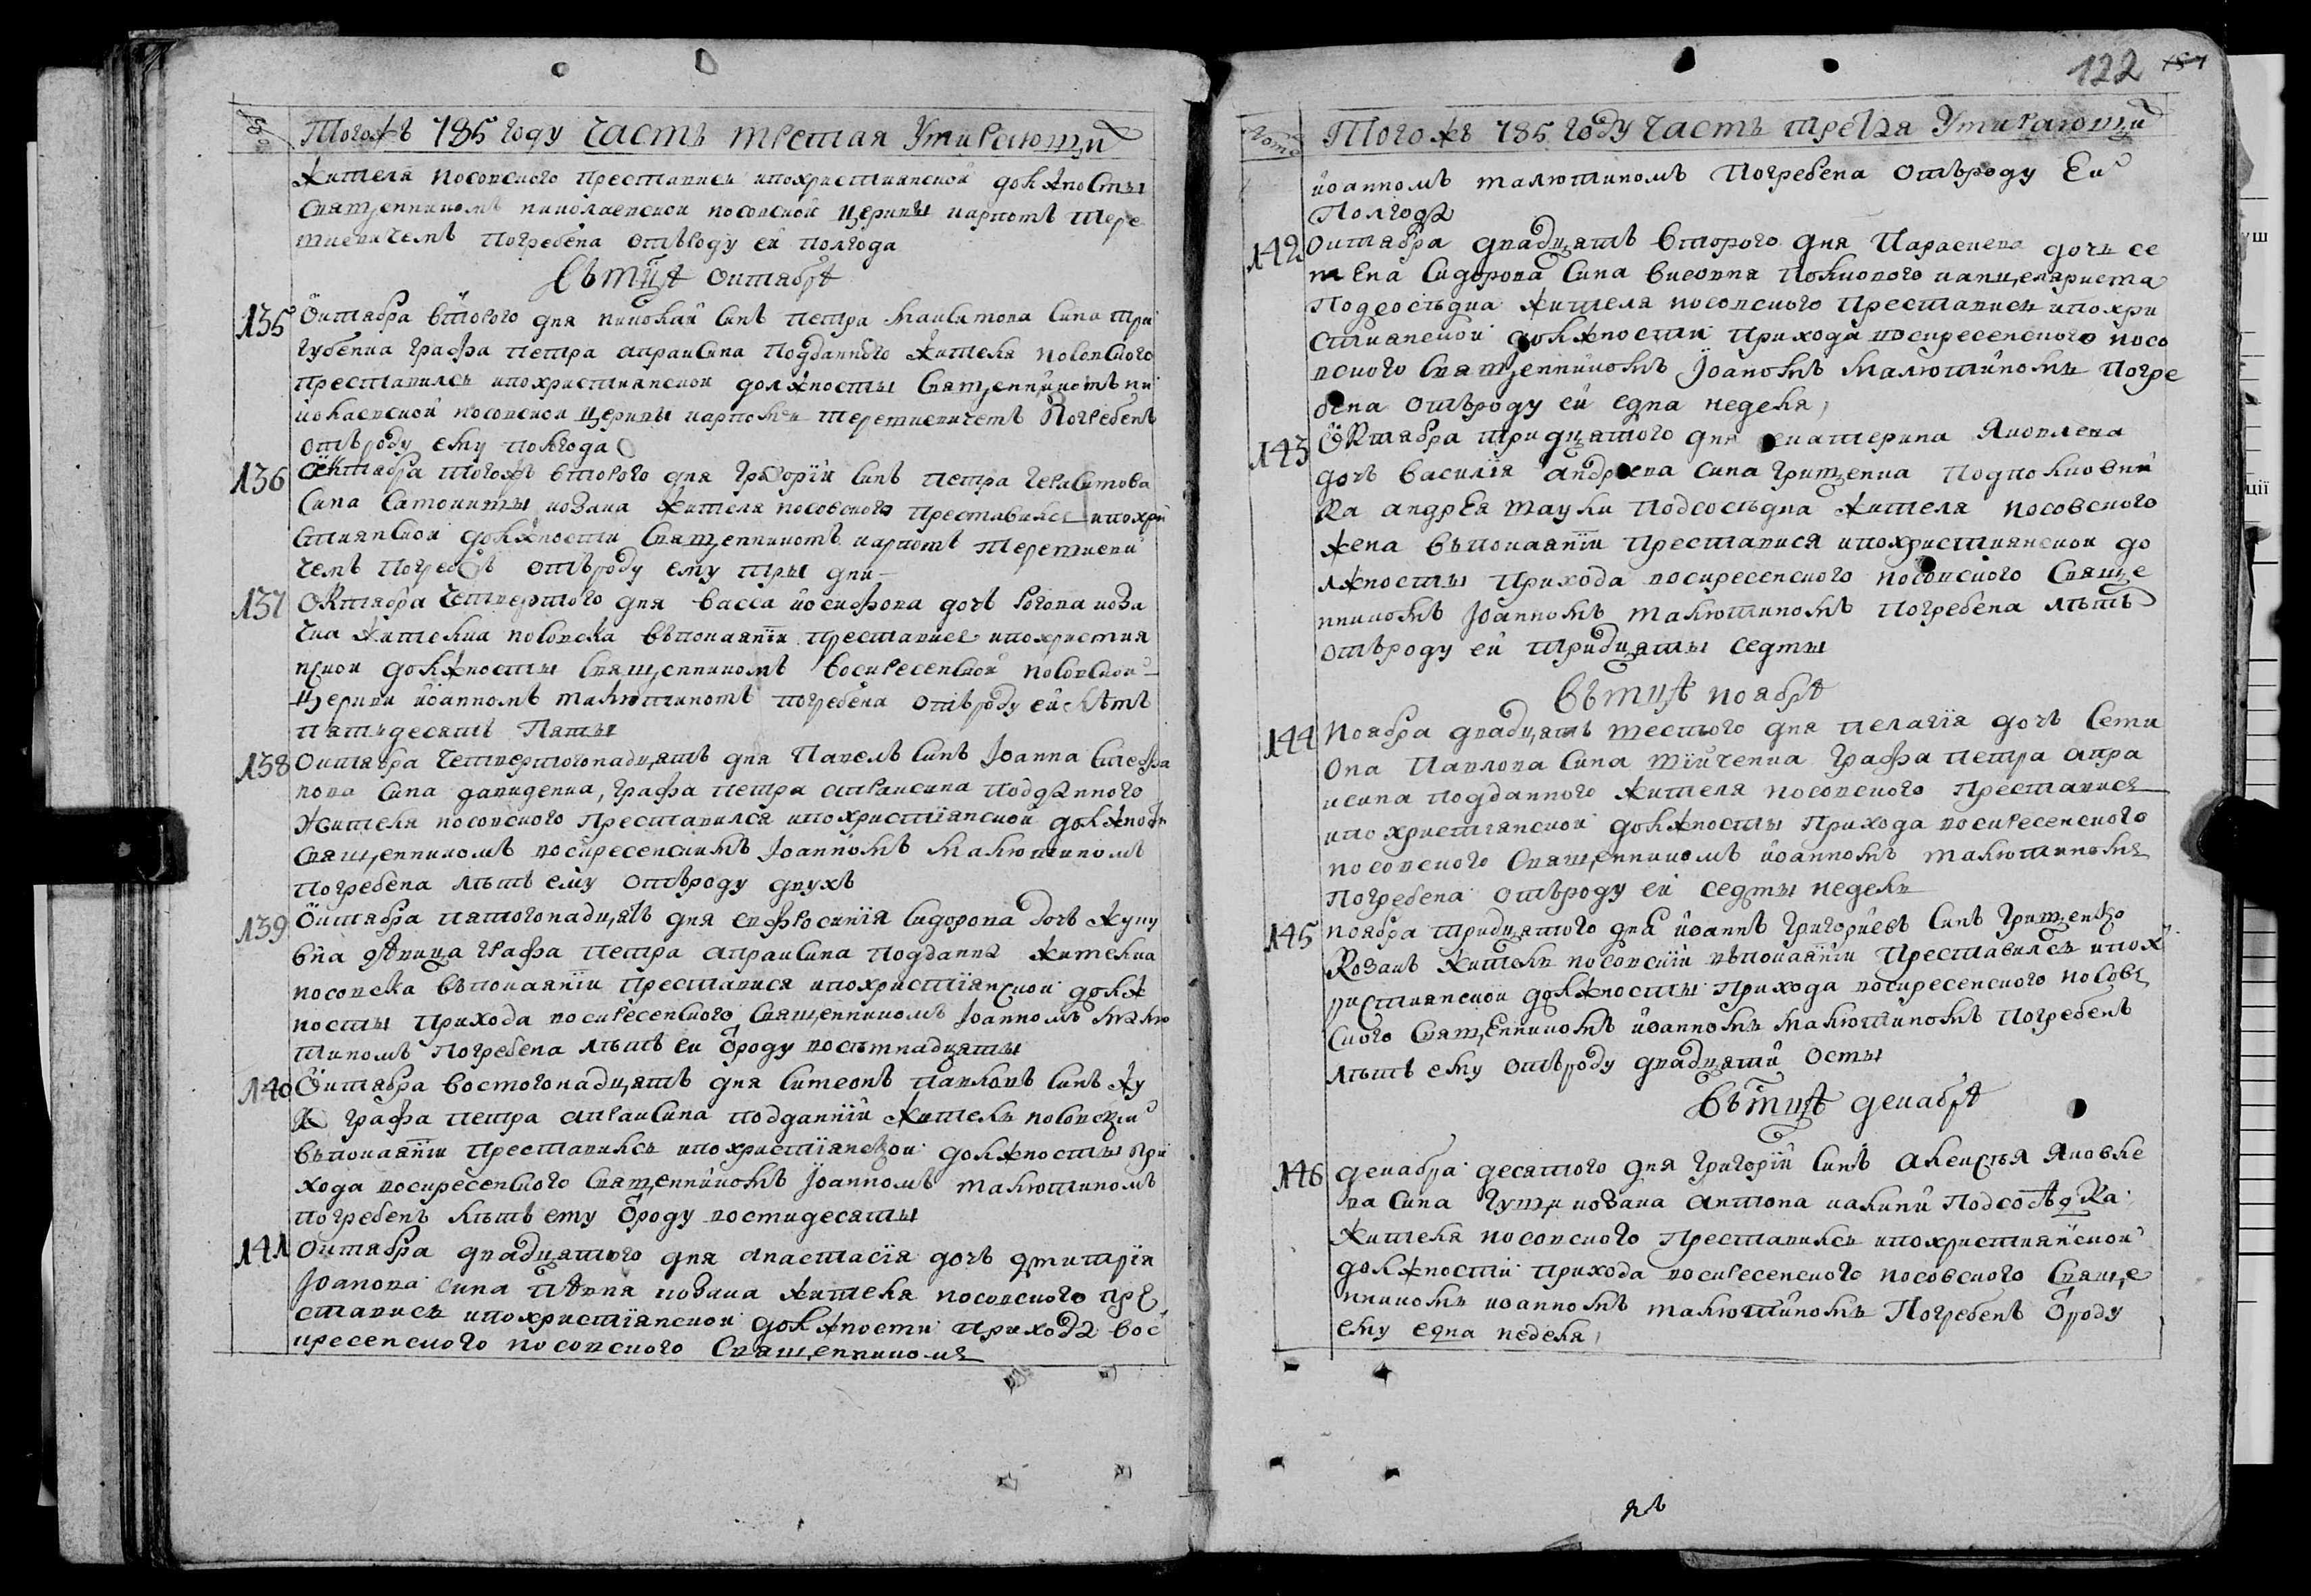 Тогожъ 785 году часть третая Умирающи
жителя носовского преставись и по христианской должносты
священникомъ николаевской носовской церкви карпомъ Тере
тиевичемъ погребена отъроду ей полгода
Въ мцѣ октабрѣ
135 Октабра второго дня николай синъ петра максимова сина Три
губенка графа петра апраксина подданного жителя носовского
преставилсь и по християнской должносты священникомъ ни
колаевской носовской церквы карпомъ теретиевичемъ погребенъ
отъроду ему полгода
136 Октабра тогожъ второго дня григорїй синъ петра герасимова
сина козака жителя носовского преставилсь и по хри
стиянской должности священникомъ карпомъ теретиеви
чемъ погребенъ отъроду ему тры дни
137 Октабра четвертого дня васса иосифова дочь рогова коза
чка жителка носовска въ покаянїи преставись и по христия
нской должносты священникомъ воскресенской носовской
церкви иоанномъ малютиномъ погребена отъроду ей лѣтъ
пятьдесятъ пяты
138 Октабра четвертогонадцять дня павелъ синъ Іоанна стефа
нова сина давиденка, графа петра апраксина подданного
жителя носовского преставился и по христїянской должности
священникомъ воскресенскимъ Іоанномъ малютиномъ
погребена лѣтъ ему отъроду двухъ
139 Октабра пятогонадцять дня евфросинїя сидорова дочь жуку
вна дѣвица графа петра апраксина подданна жителка
носовска въ покаянїи преставися и по христїянской долж
носты прихода воскресенского священникомъ Іоанномъ малю
тиномъ погребена лѣтъ ей ѿроду восѣмнадцяты
140 Октабра востогонадцять дня симеонъ павловъ синъ жу
к графа петра апраксина подданнїй житель носовскїй
въ покаянїи преставилсь и по христїянской должносты при
хода воскресенского священникомъ Іоанномъ малютиномъ
погребенъ лѣтъ ему ѿроду востидесяты
141 Октабра двадцятого дня анастасїя дочь дмитрїя
Іоанова сина козака жителя носовского пре
ставись и по христїянской должности прихода вос
кресенского носовского священникомъ
122
Того жъ 785 году часть третая Умирающи
иоанномъ малютиномъ погребена отъроду ей
полгода
142 Октабра двадцять второго дня параскева дочь се
мена сидорова сина полкового канцеляриста
подсосѣдка жителя носовского преставись и по хри
стиянской должности прихода воскресенского носо
вского священникомъ Іоаномъ малютиномъ погре
бена отъроду ей една неделя,
143 Октабра тридцятого дня екатерина яковлева
дочь василїя андреева сина грищенка подполковни
ка андрея подсосѣдка жителя носовского
жена въ покаянїи преставися и по християнской до
лжносты прихода воскресенского носовского свяще
нникомъ Іоанномъ малютиномъ погребена лѣтъ
отъроду ей тридцяты седмы
Въ мцѣ ноабрѣ
144 Ноабра двадцять шестого дня пелагїя дочь семи
она павлова сина графа петра апра
ксина подданного жителя носовского преставися
и по християнской должносты прихода воскресенского
носовского священникомъ иоанномъ малютиномъ
погребена отъроду ей седмы недель
145 ноабра тридцятого дня иоаннъ григориевъ синъ грищенко
козакъ житель носовскїй въ покаянїи преставилсь и по х
ристиянской должносты прихода воскресенского носов
ского священникомъ иоанномъ малютиномъ погребенъ
лѣтъ ему отъроду двадцяти осмы
Въ мцѣ декабрѣ
146 декабра десятого дня григорїй синъ алексѣя яковле
ва сина козака антона подсосѣдка
жителя носовского преставилсь и по християнской
должности прихода воскресенского носовского свяще
нникомъ иоанномъ малютиномъ погребенъ ѿроду
ему една неделя,